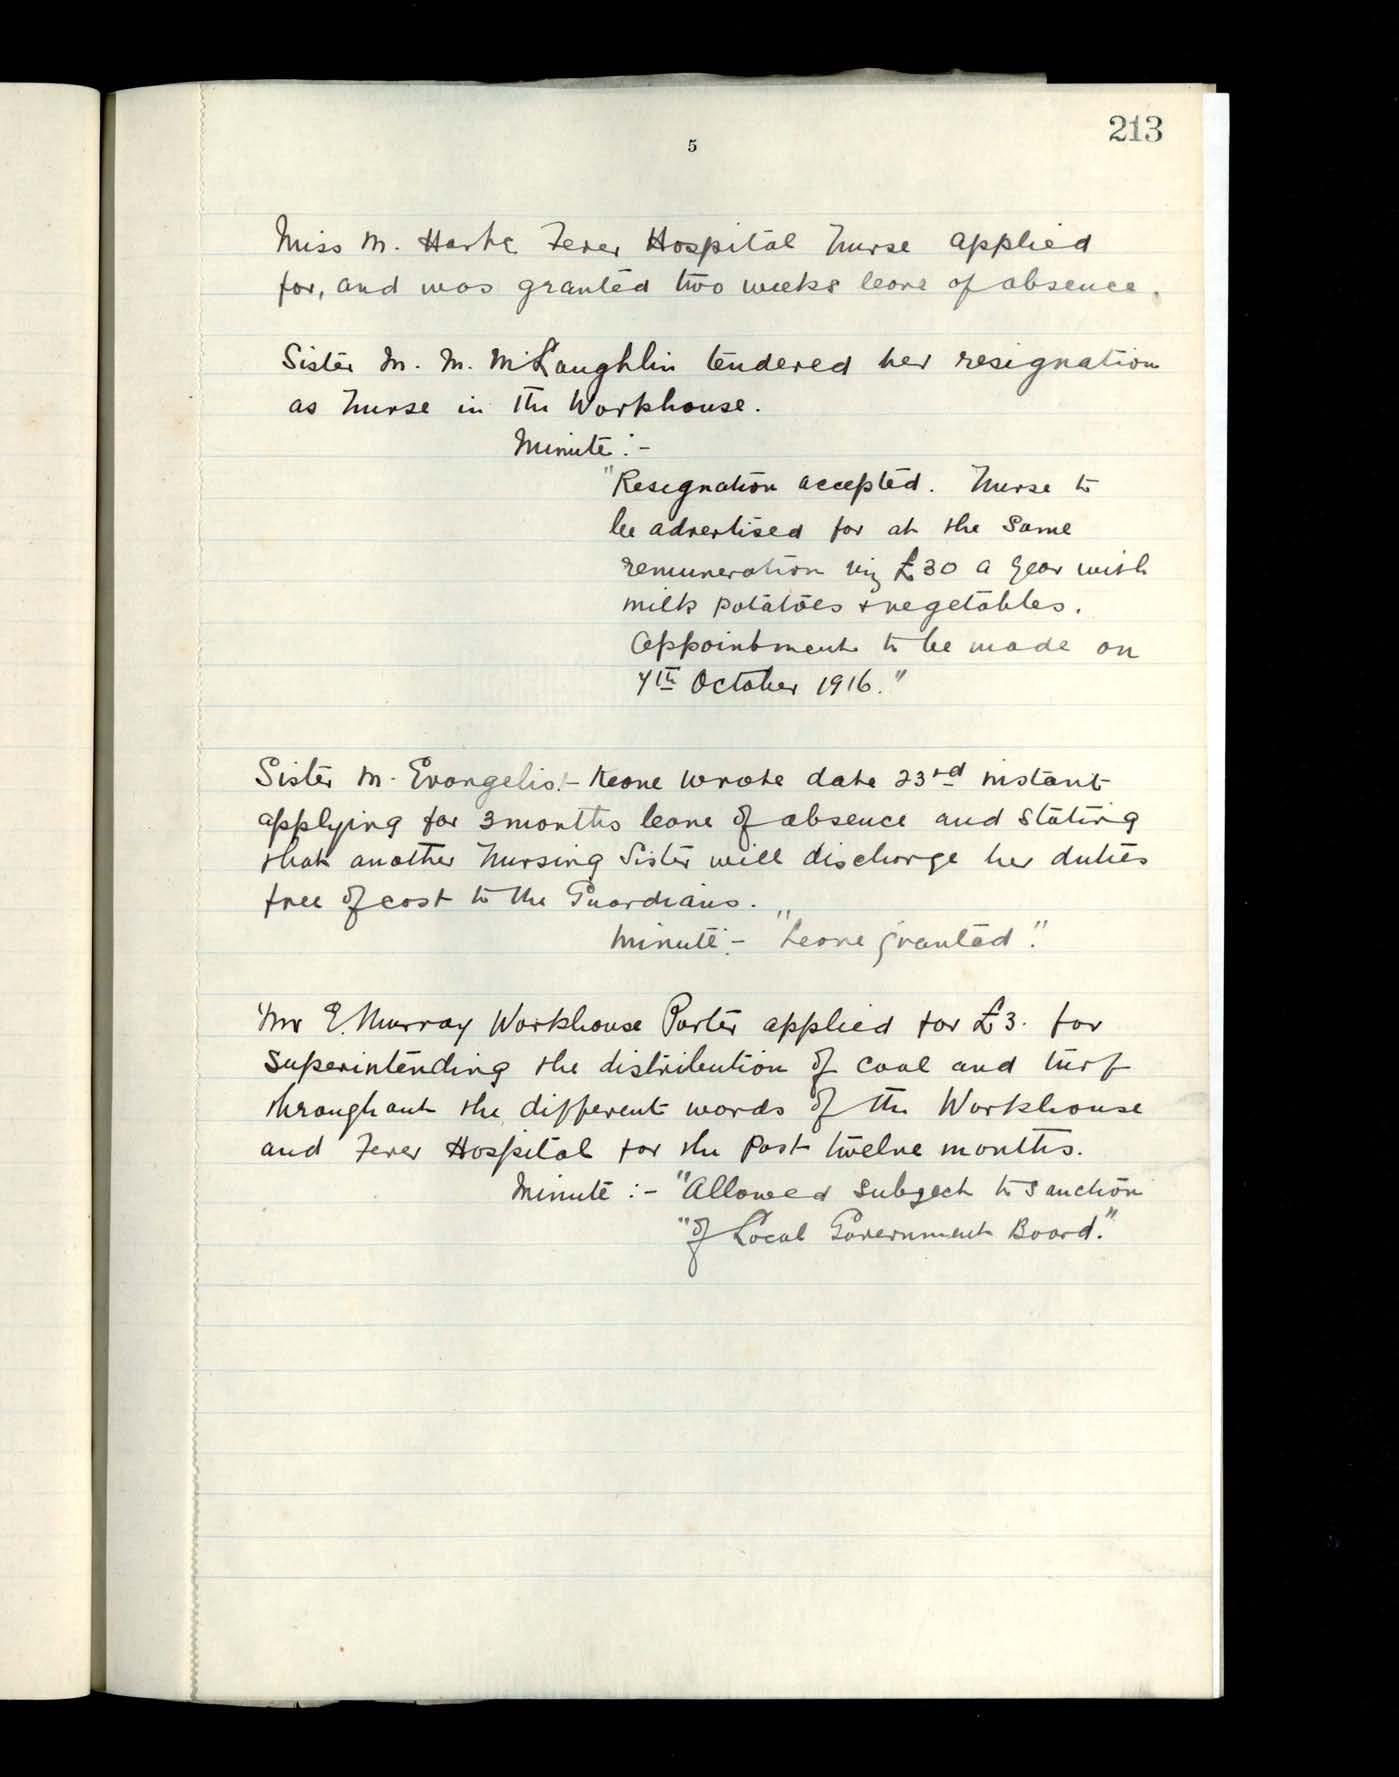 213
5
Miss M. Harte Fever Hospital Nurse applied
for, and was granted two weeks leave of absence.
Sister M. M. McLaughlin tendered her resignation
as Nurse in the Workhouse.
Minute :-
"Resignation accepted. Nurse to
be advertised for at the same
remuneration viz £30 a year with
milk potatoes & vegetables.
Appointment to be made on
7th October 1916."
Sister M. Evangelist Keane wrote date 23rd instant
applying for 3 months leave of absence and stating
that another Nursing Sister will discharge her duties
free of cost to the Guardians.
Minute :- "Leave granted".
Mr E. Murray Workhouse Porter applied for £3. for
superintending the distribution of coal and turf
throughout the different wards of the Workhouse
and Fever Hospital for the past twelve months.
Minute :- "Allowed subject to sanction
"of Local Government Board."